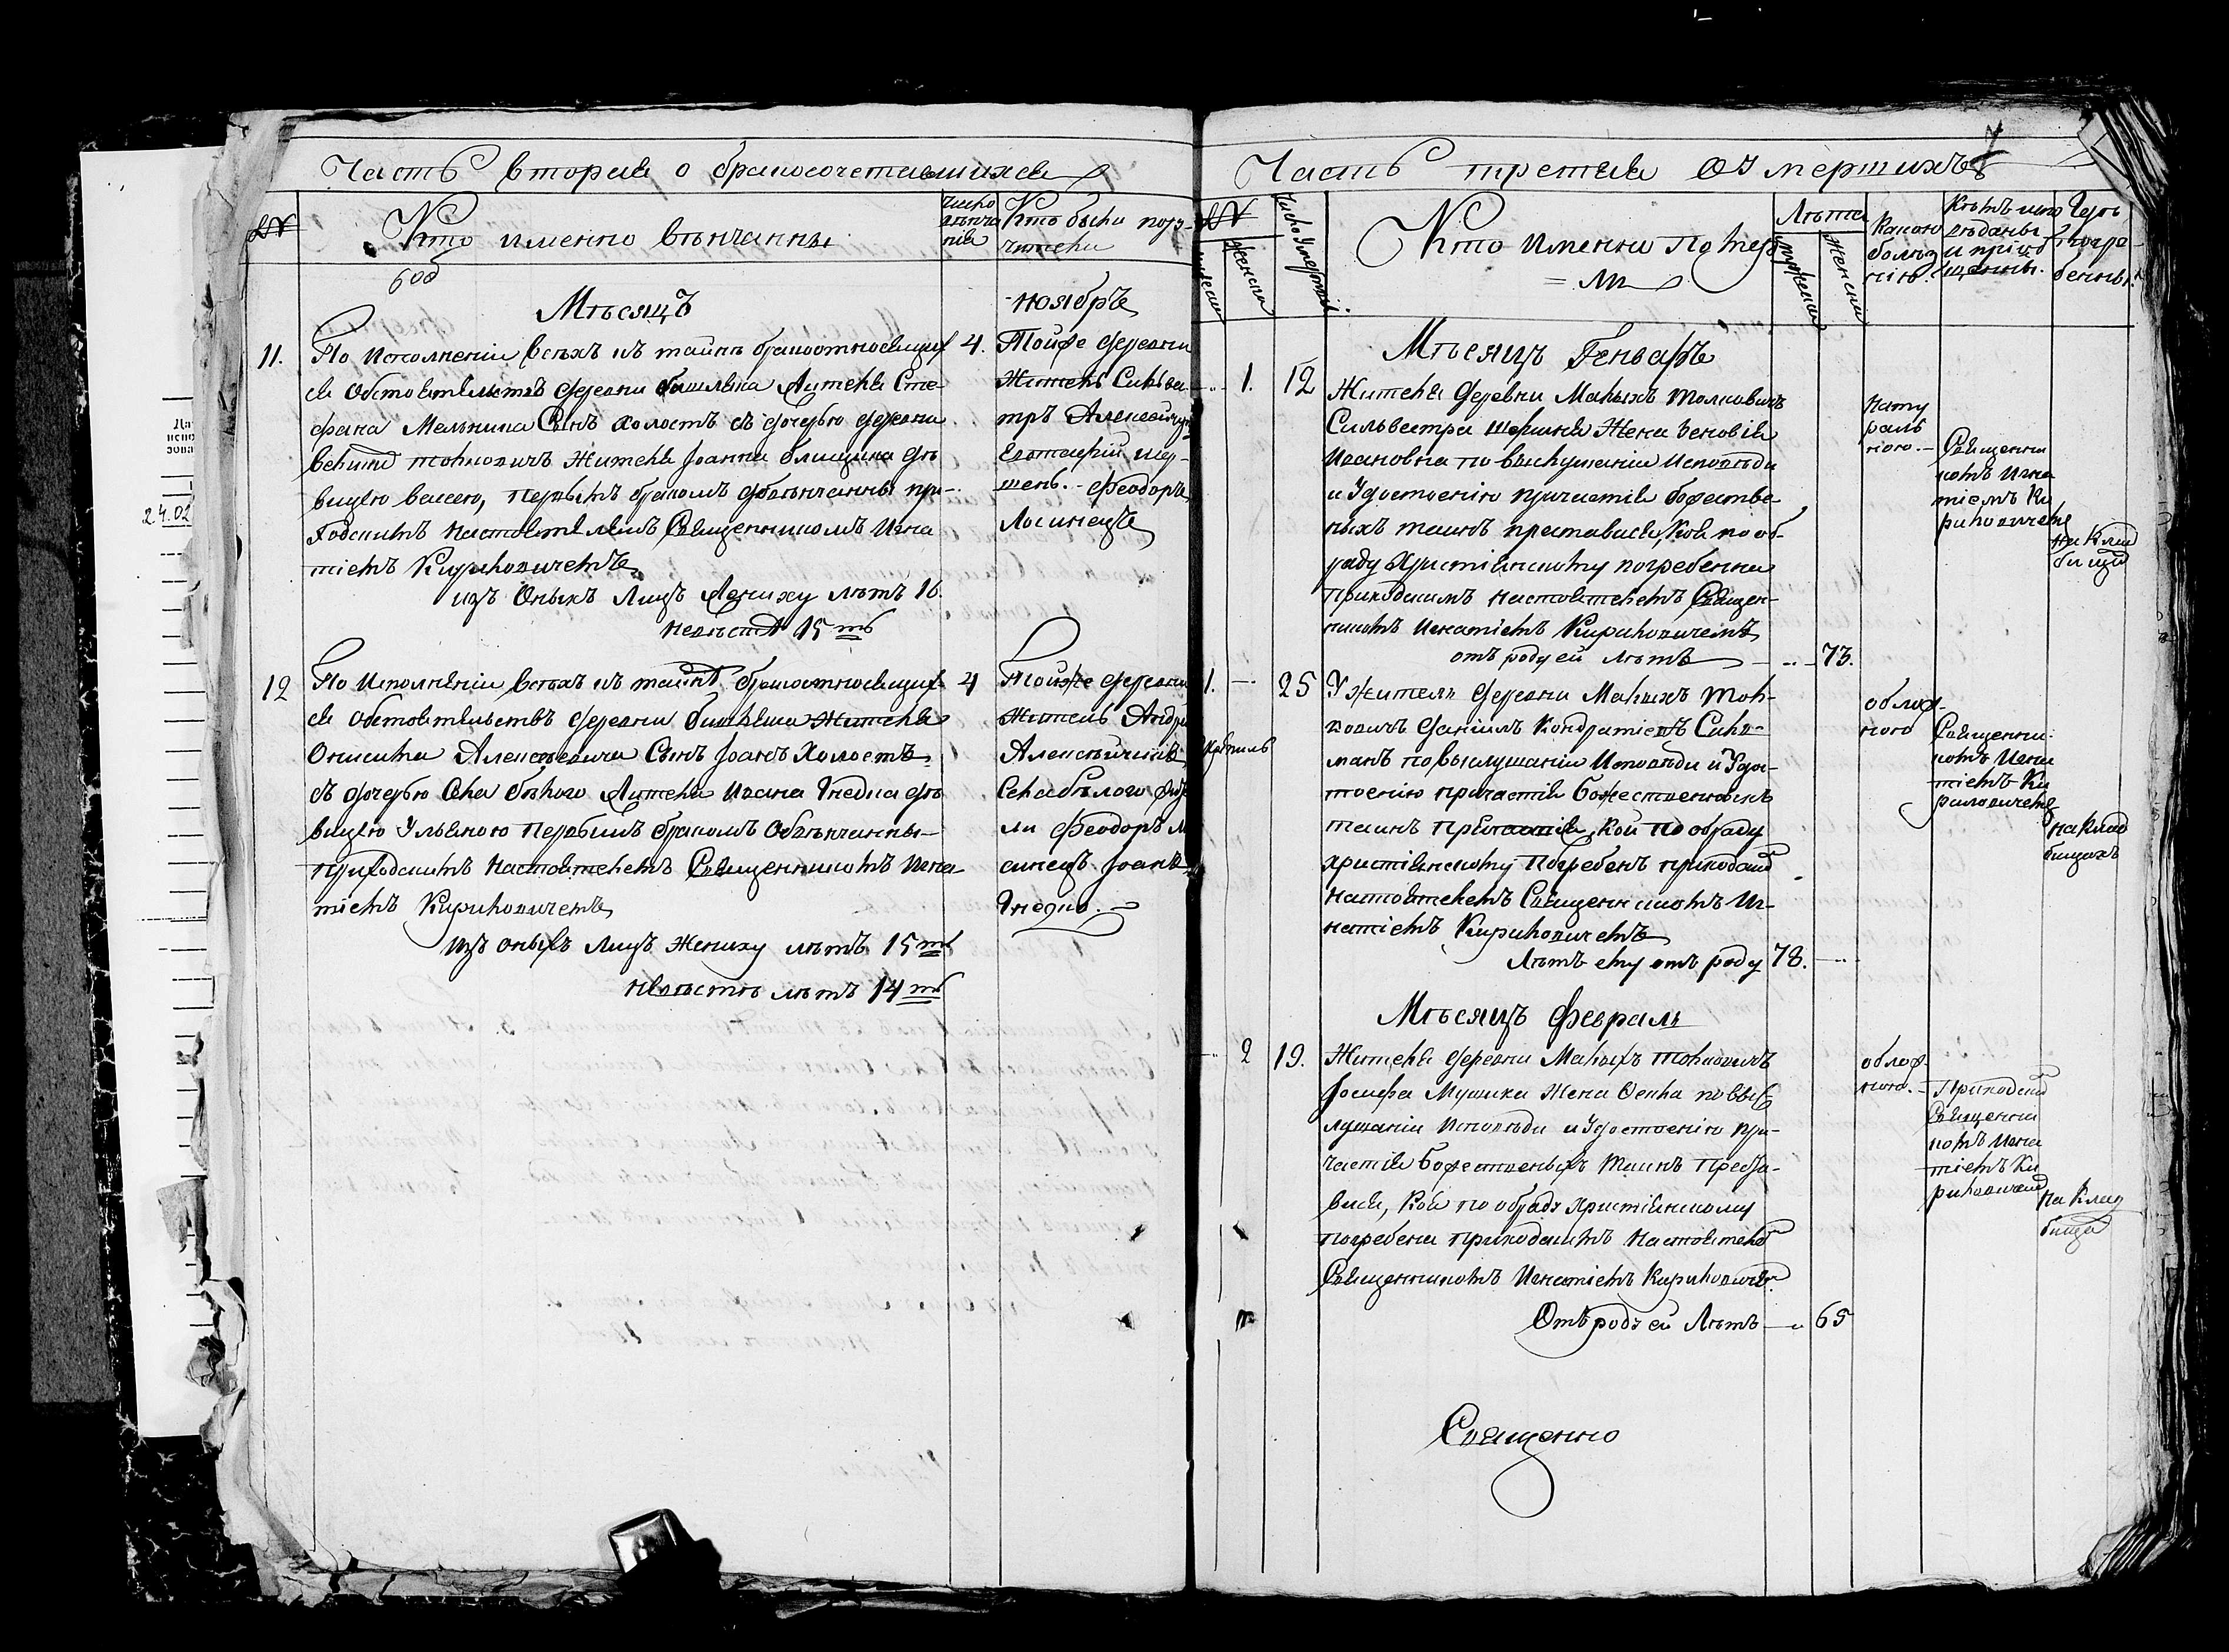 Часть вторая о бракосочетавшихся
№
Кто именно вѣнчанны
число вѣнча нія
Кто были пору-
чители
Мѣсяцъ
ноябръ
11.
По исполненіи всѣхъ къ тайнѣ браκоотносящих
4.
ся обстоятельствъ деревни Жителя Сте-
фана Мельника Сынъ холостъ съ дочерью деревни
Жителя Іоанна дѣ
вицею первымъ бракомъ обвѣнчанны при-
ходскимъ настоятелемъ Священникомъ Игна
тіемъ Кириловичемъ
изъ оныхъ лицъ Жениху лѣтъ 16.
невѣстѣ 15 ть
Тойже деревни
Житель Сильве
тръ
Феодоръ
Лосинецъ
12
По исполненіи всѣхъ къ тайнѣ бракоотносящих
4
ся обстоятельствъ деревни Жителя
Онисима Алексѣевича Сынъ Іоанъ Холостъ
съ дочерью Села Бѣлого Жителя Ивана Гнедка дѣ
вицею Ульяною первымъ бракомъ обвѣнчанны
приходскимъ настоятелемъ Священникомъ Игна-
тіемъ Кириловичемъ
изъ оныхъ лицъ Жениху лѣтъ 15 ть
невѣстѣ лѣтъ 14 ть
Тойже деревни
Житель Андре
Села бѣлого
ли Феодоръ Л
синецъ Іоанъ
Гнедко.
24.02
Часть третья О умершихъ
№
Число Умертвій.
Кто имянно помер
ли
Лѣта
мужеска
женска
Какою
болѣз
нію.
Кѣмъ испо
вѣданы
и пріоб
щенны.
Где
погре
бенны.
Мѣсяцъ Генваръ
1.
12
Жителя деревни Малыхъ Толковичъ
Сильвестра Жена Зеновія
Ивановна по выслушаніи исповѣди
и удостоенію причастія божестве
ныхъ таинъ преставися, коя по об-
ряду христіянскому погребенна
приходскимъ настоятелемъ Священ-
никомъ Игнатіемъ Кириловичемъ
отъ роду ей лѣтъ 73.
нату
раль
ною.
Священни
комъ Игна
тіемъ Ки
риловичемъ
на клад
бищѣ
1.
25
Житель деревни Малыхъ Тол-
ковичъ Даніилъ Кондратіевъ
по выслушаніи исповѣди и Удос-
тоенію причастія Божественныхъ
таинъ кой по обряду
христіянскому погребенъ приходским
настоятелемъ Священникомъ Иг-
натіемъ Кириловичемъ
лѣтъ ему отъ роду 78.
облож-
ною
Священни-
комъ Игна
тіемъ Ки
риловичемъ
на клад
бищахъ
Мѣсяцъ февраль
2
19.
Жителя деревни Малыхъ Толковичъ
Іосифа Мушика Жена по выс
лушаніи исповѣди и Удостоенію при-
частія Божественыхъ Таинъ преста-
вися, коя по обряду христіянскому
погребена приходскимъ настоятелем
Священникомъ Игнатіемъ Кириловичем
Отъ роду ей лѣтъ 65
облож-
ною.
Приходским
Священни
комъ Игна
тіемъ Ки
риловичем
на клад
бищѣ
Священно